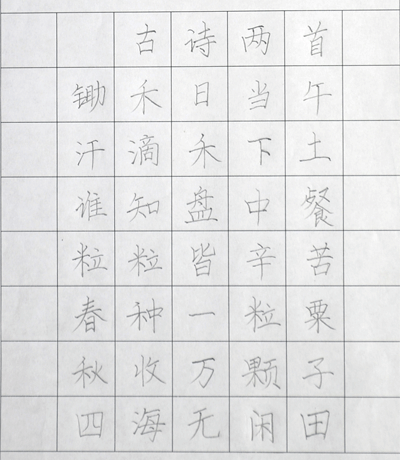 古诗两首
锄禾日当午
汗滴禾下土
谁知盘中餐
粒粒皆辛苦
春种一粒粟
秋收万颗子
四海无闲田